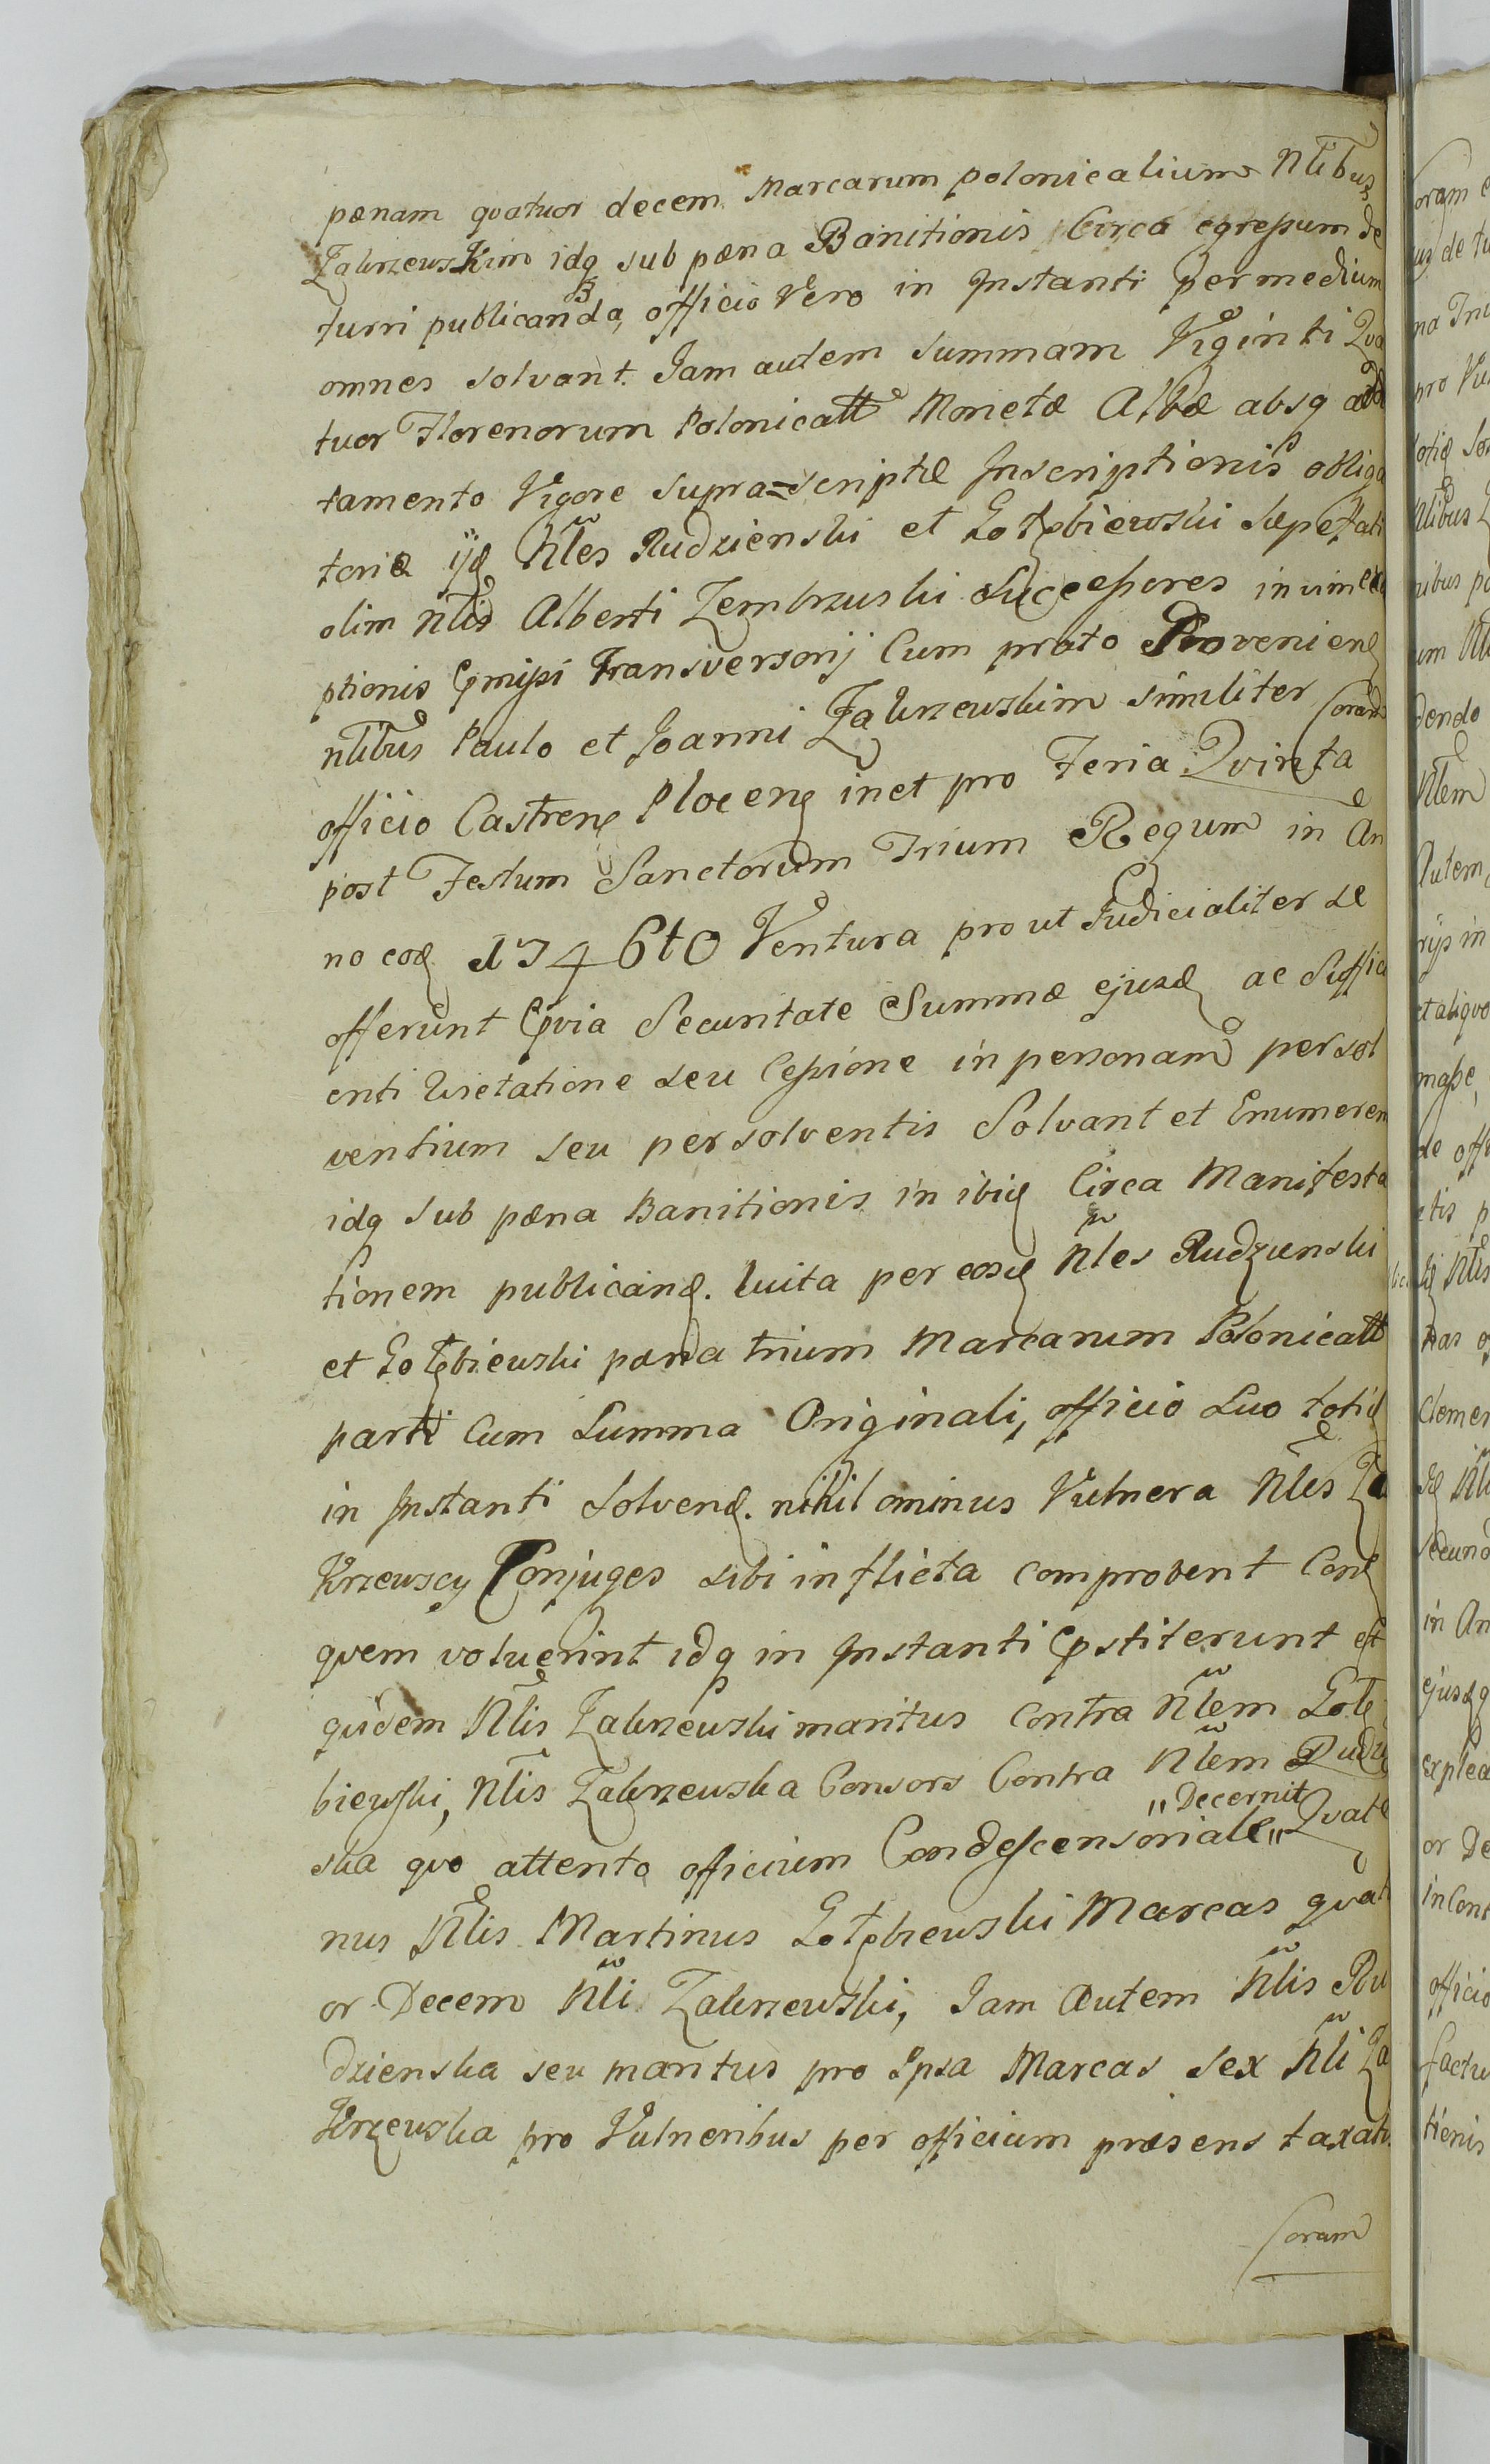 pænam qvatuor decem Marcarum polonicalium Nlibus
Zakrzewskim idq sub pæna Banitionis Circa egressum de
turri publicanda, officio Vero in Instanti per medium
omnes solvant. Jam autem summam Viginti Qva
tuor Florenorum Polonicall Monetæ Albæ absq add
tamento Vigore supra=scriptæ Inscriptionis obliga
toriæ ijd Nles Rudzienski et Gołębiewski sæpefati
olim Nlis Alberti Zembrzuski Successores in vim
ptionis Cmissi Transversorij Cum prato Provenien
nlibus Paulo et Joanni Zakrzewskim similiter coram
officio Castren Plocen inet pro Feria Qvinta
post Festum Sanctorum Trium Regum in An
no eod 1746to Ventura prout Judicialiter se
offerunt Qvia Securitate Summæ ejusd ac Suffici
enti Qvietatione seu Cessione in personam persol
ventium seu persolventis Solvant et Enumeren
idq sub pæna Banitionis in ibid Circa Manifesta
tionem publicand. luita per eosd Nles Rudzienski
et Gołębiewski pæna trium Marcarum Polonicall
parti Cum Summa Originali, officio Suo totid
in Instanti Solvend. nihilominus Vulnera Nles Za
Krzewscy Conjuges sibi inflicta comprobent Con
qvem voluerint idq in Instanti Cpstiterunt et
qvidem Nlis Zakrzewski maritus contra Nlem Gołę
biewski, Nlis Zakrzewska Consors Contra Nlem Rudzie
ska qvo attento officium Condescensoriale "Decernit" Qvate
nus Nlis Martinus Gołębiewski Marcas qvat
or Decem Nli Zakrzewski, Jam Autem Nlis Ru
dzienska seu maritus pro Ipsa Marcas sex Nli Za
Krzewska pro Vulneribus per officium præsens taxatis
Coram